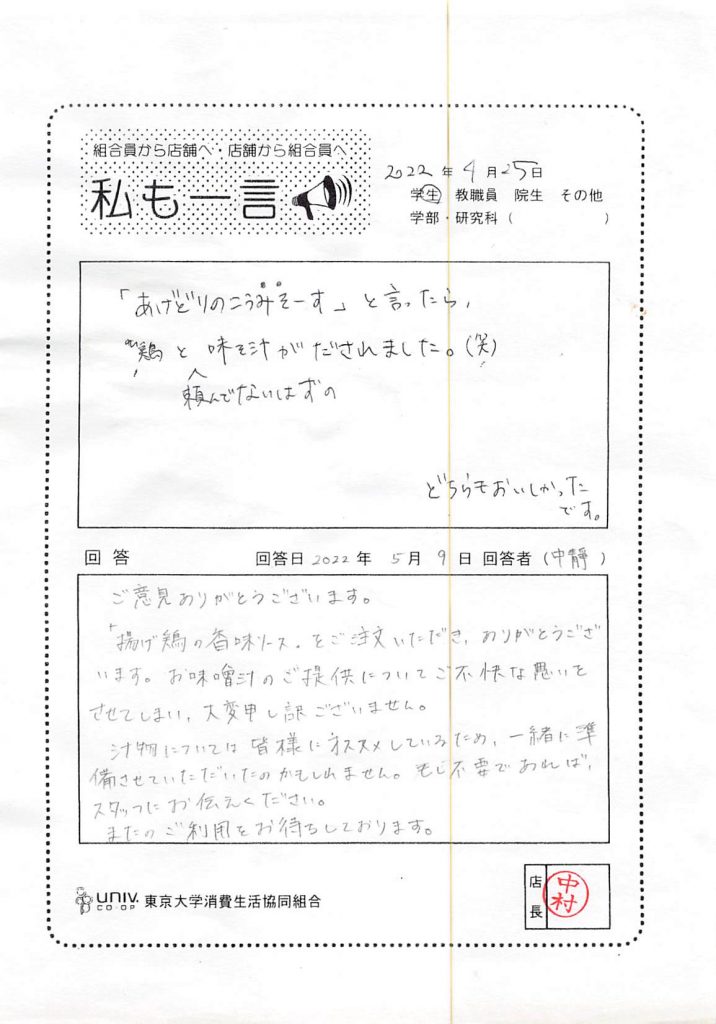 組合員から店舗へ・店舗から組合員へ
私も一言
2022年4月25日
学生 教職員 院生 その他
学部・研究科( )
「あげどりのこうみそーす」と言ったら、
鶏と味そ汁がだされました。(笑)
頼んでないはずの
どちらもおいしかった
です。
回答 回答日2022年5月9日 回答者(中靜)
ご意見ありがとうございます。
「揚げ鶏の香味ソース」をご注文いただき、ありがとうござ
います。お味噌汁のご提供についてご不快な思いを
させてしまい、大変申し訳ございません。
汁物については皆様にオススメしているため、一緒に準
備させていただいたのかもしれません。もし不要であれば、
スタッフにお伝えください。
またのご利用をお待ちしております。
UNIV.
CO-OP
東京大学消費生活協同組合
店長
中村